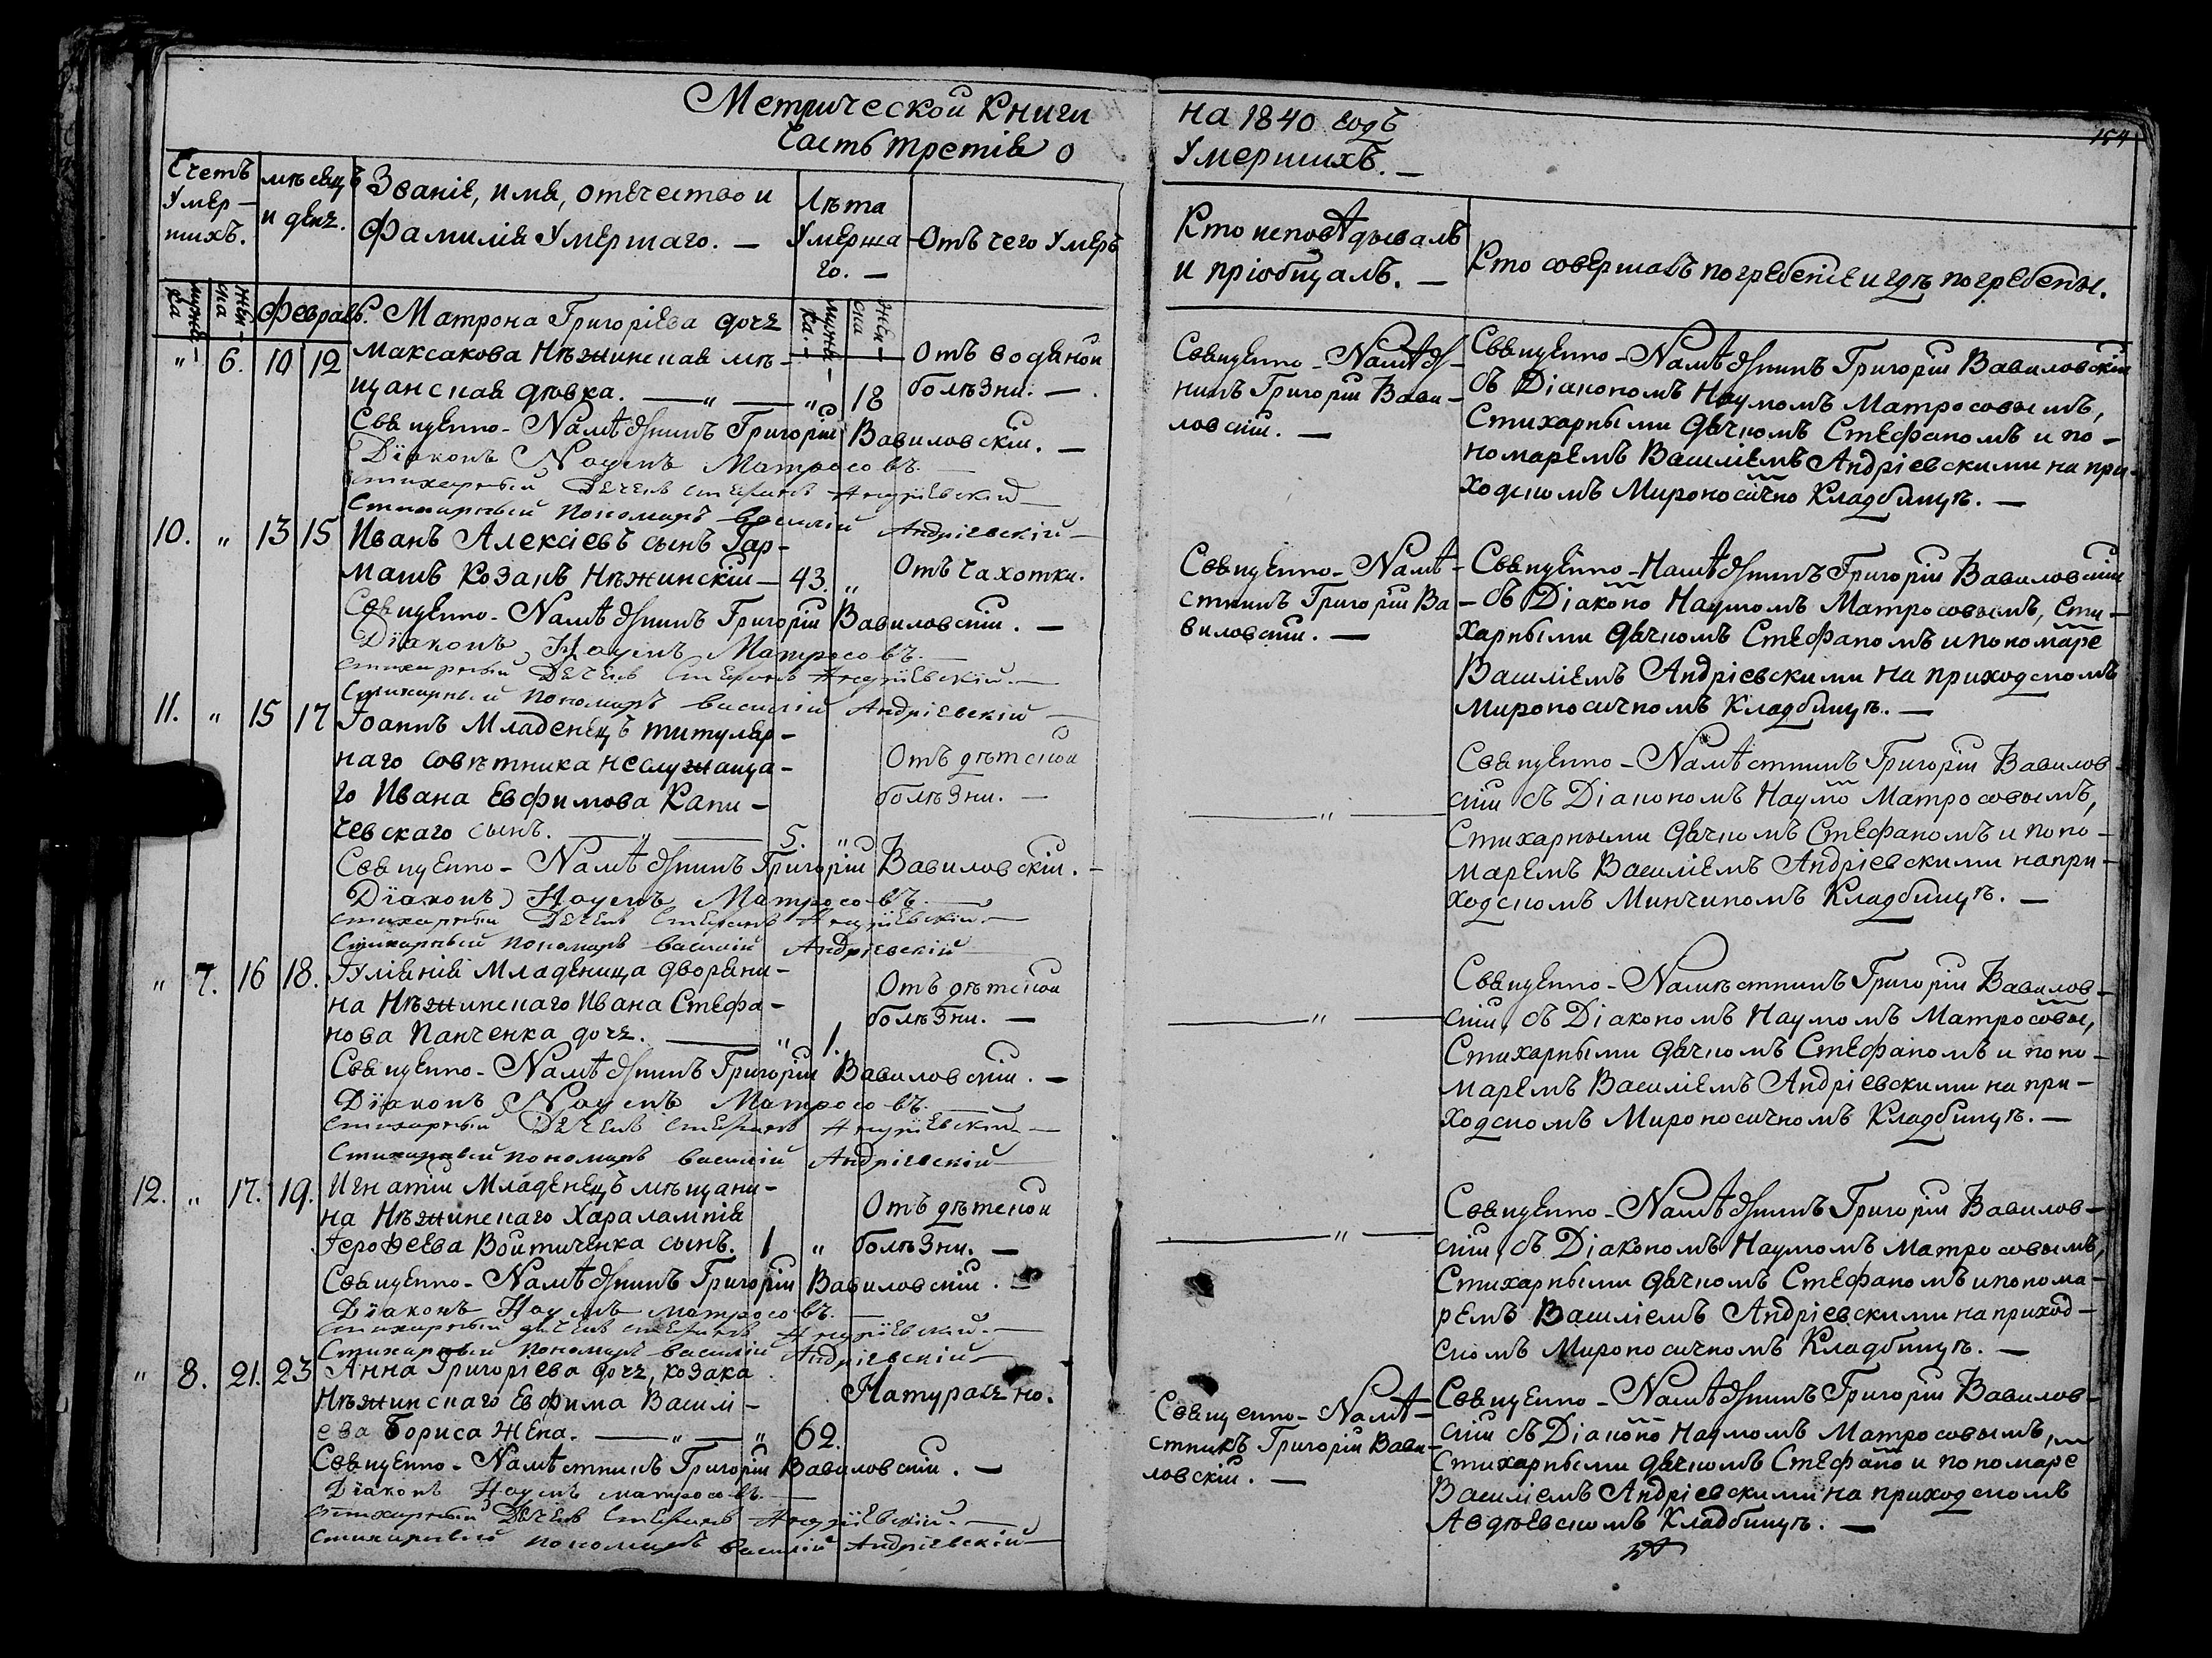 Метрической Книги
Часть третія о
Счетъ Умер-шихъ.
мѣсецъ и день.
Званіе, имя, отечество и
Фамилія Умершаго. —
Лѣта Умерша го. —
Отъ чего Умеръ
мужеска
женска
Февраль.
мужеска. —
женска —
" 6. 10 12 Матрона Григоріева дочь
Максакова Нѣжинская мѣ-
щанская дѣвка. — " — " 18
Отъ водяной
болѣзни. —
Священно-Намѣстникъ Григорій Вавиловскій. —
Діаконъ Наумъ Матросовъ. —
Стихарный Дячекъ Стефанъ Андріевскій —
Стихарный Пономарь Василій Андріевскій —
10. " 13 15 Иванъ Алексіевъ сынъ Гар-
машъ Козакъ Нѣжинскій — 43. "
Отъ чахотки.
Священно-Намѣстникъ Григорій Вавиловскій. —
Діаконъ Наумъ Матросовъ. —
Стихарный Дячекъ Стефанъ Андріевскій. —
Стихарный Пономарь Василій Андріевскій —
11. " 15 17 Іоаннъ Младенецъ титуляр-
наго совѣтника неслужаща-
го Ивана Евфимова Капи-
чевскаго сынъ. — " — 5. "
Отъ дѣтской
болѣзни. —
Священно-Намѣстникъ Григорій Вавиловскій. —
Діаконъ Наумъ Матросовъ. —
Стихарный Дячекъ Стефанъ Андріевскій. —
Стихарный Пономарь Василій Андріевскій —
" 7. 16 18. Іуліянія Младеница дворяни-
на Нѣжинскаго Ивана Стефа-
нова Панченка дочь. — " 1.
Отъ дѣтской
болѣзни. —
Священно-Намѣстникъ Григорій Вавиловскій. —
Діаконъ Наумъ Матросовъ. —
Стихарный Дячекъ Стефанъ Андріевскій —
Стихарный Пономарь Василій Андріевскій —
12. " 17. 19. Игнатій Младенецъ мѣщани-
на Нѣжинскаго Харалампія
Іерофеева Войтиченка сынъ. 1 "
Отъ дѣтской
болѣзни. —
Священно-Намѣстникъ Григорій Вавиловскій. —
Діаконъ Наумъ Матросовъ. —
Стихарный Дячекъ Стефанъ Андріевскій. —
Стихарный Пономарь Василій Андріевскій —
" 8. 21. 23 Анна Григоріева дочь, козака
Нѣжинскаго Евфима Василі-
ева Бориса Жена. — " — " 62.
Натурально.
Священно-Намѣстникъ Григорій Вавиловскій. —
Діаконъ Наумъ Матросовъ. —
Стихарный Дячекъ Стефанъ Андріевскій. —
Стихарный Пономарь Василій Андріевскій —
на 1840 годъ
Умершихъ. —
Кто исповѣдывалъ
и пріобщалъ. —
Кто совершалъ погребеніе и гдѣ погребены.
Священно-Намѣст-
никъ Григорій Вави-
ловскій. —
Священно-Намѣстникъ Григорій Вавиловскій
съ Діакономъ Наумомъ Матросовымъ,
Стихарными дячкомъ Стефаномъ и по-
номаремъ Василіемъ Андріевскими на при-
ходскомъ Мироносично Кладбищѣ. —
Священно-Намѣ-
стникъ Григорій Ва-
виловскій. —
Священно-Намѣстникъ Григорій Вавиловскій
съ Діаконо Наумомъ Матросовымъ, Сти-
харными дячкомъ Стефаномъ и пономаре
Василіемъ Андріевскими на приходскомъ
Мироносичномъ Кладбищѣ. —
— " —
Священно-Намѣстникъ Григорій Вавилов-
скій съ Діакономъ Наумо Матросовымъ,
Стихарными дячкомъ Стефаномъ и поно-
маремъ Василіемъ Андріевскими на при-
ходскомъ Минчиномъ Кладбищѣ. —
— " —
Священно-Намѣстникъ Григорій Вавилов-
скій, съ Діакономъ Наумомъ Матросовы,
Стихарными дячкомъ Стефаномъ и поно-
маремъ Василіемъ Андріевскими на при-
ходскомъ Мироносичномъ Кладбищѣ. —
— " —
Священно-Намѣстникъ Григорій Вавилов-
скій, съ Діакономъ Наумомъ Матросовымъ,
Стихарными дячкомъ Стефаномъ и понома-
ремъ Василіемъ Андріевскими на приход-
скомъ Мироносичномъ Кладбищѣ. —
Священно-Намѣ-
стникъ Григорій Вави-
ловскій. —
Священно-Намѣстникъ Григорій Вавилов-
скій съ Діаконо Наумомъ Матросовымъ,
Стихарными дячкомъ Стефано и пономаре
Василіемъ Андріевскими на приходскомъ
Авдѣевскомъ Кладбищѣ. —